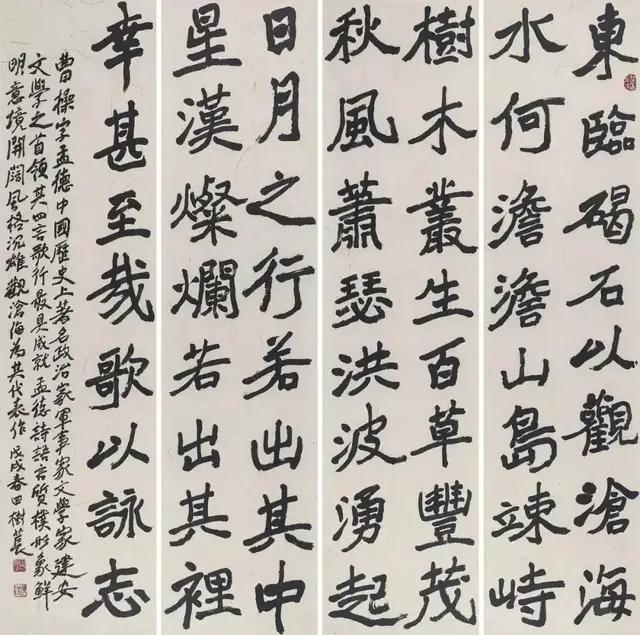 東臨碣石以觀滄海
水何澹澹山島竦峙
樹木叢生百草豐茂
秋風蕭瑟洪波湧起
日月之行若出其中
星漢燦爛若出其裡
幸甚至哉歌以詠志
曹操字孟德中國歷史上著名政治家軍事家文學家建安
文學之首領其四言歌行最具成就孟德詩語言質樸形象鮮
明意境開闊風格沉雄觀滄海為其代表作戊戌春田樹萇